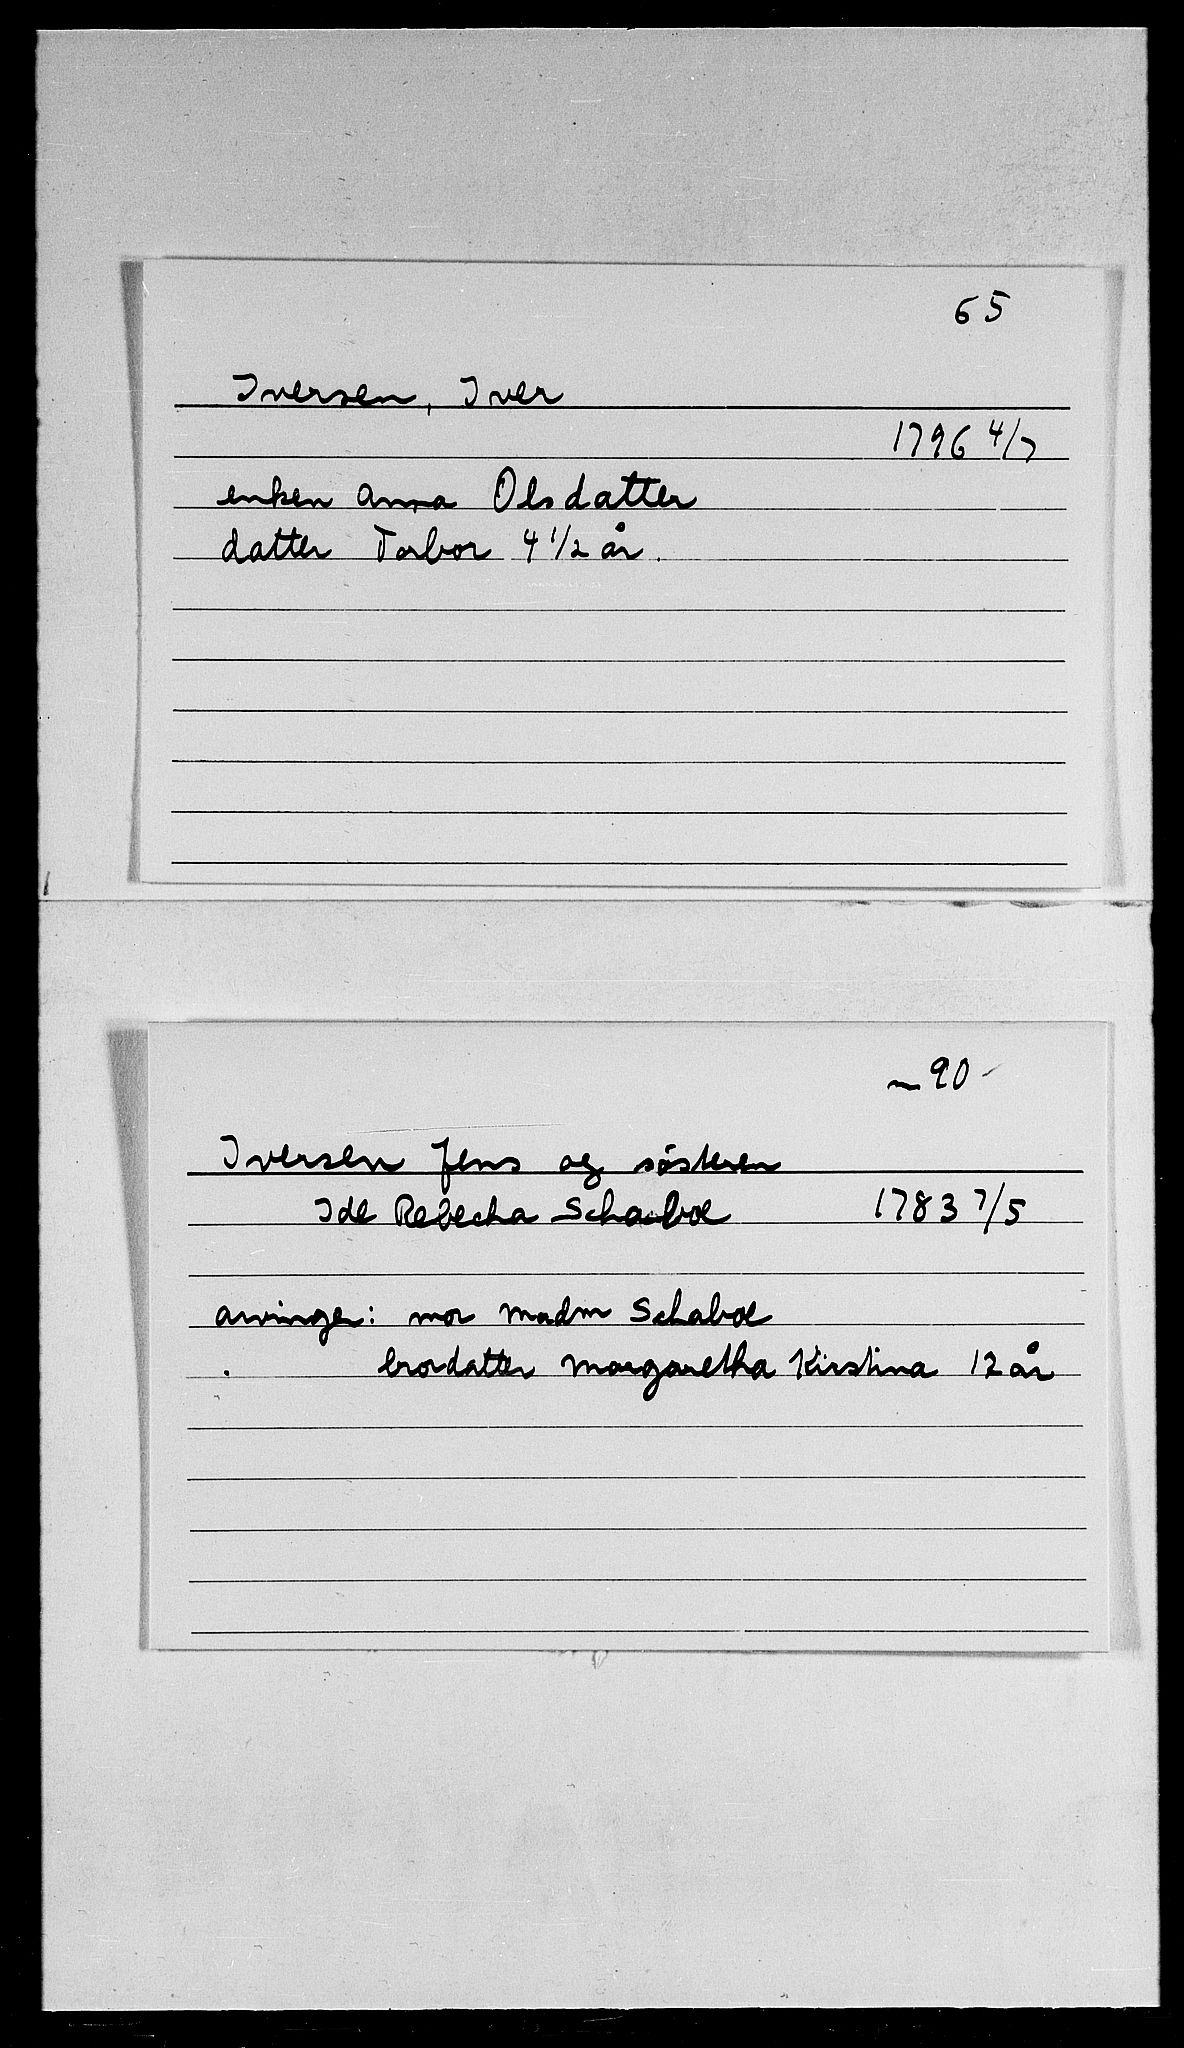 65
Iversen, Iver
1796 4/7
enken Anna Olsdatter
datter Torbor 4 1/2 år.
90
Iversen Jens og søsteren
Ide Rebecha Schaboe 1783 7/5
arvinger: mor Madm Schaboe
brordatter Margaretha Kirstina 12 år